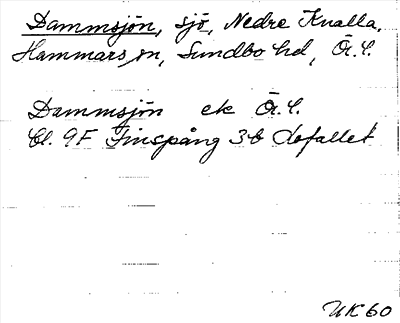 Dammsjön, sjö, Nedre Knalla,
Hammars sn, Sundbo hd, Ör. l.
Dammsjön ek Ör. l.
Bl. 9F Finspång 3b
UK60